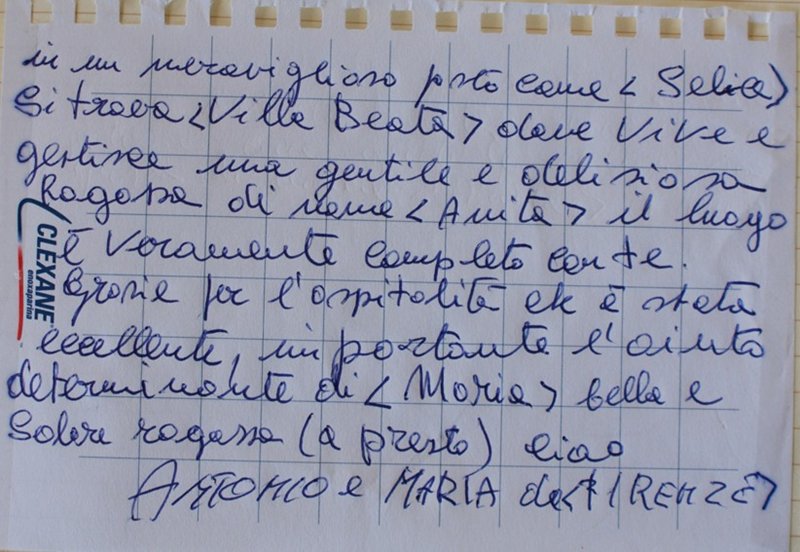 in un meraviglioso posto come < Selica>
si trova <Villa Beata> dove vive e
gestisce una gentile e deliziosa
Ragazza di nome <Anita> il luogo
è veramente completo con te.
Grazie per l'ospitalità ch è stata
eccellente, importante l'aiuto
determinante di < Maria> bella e
solare ragazza (a presto) ciao
ANTONIO e MARIA da <FIRENZE>
CLEXANE
enoxaparina